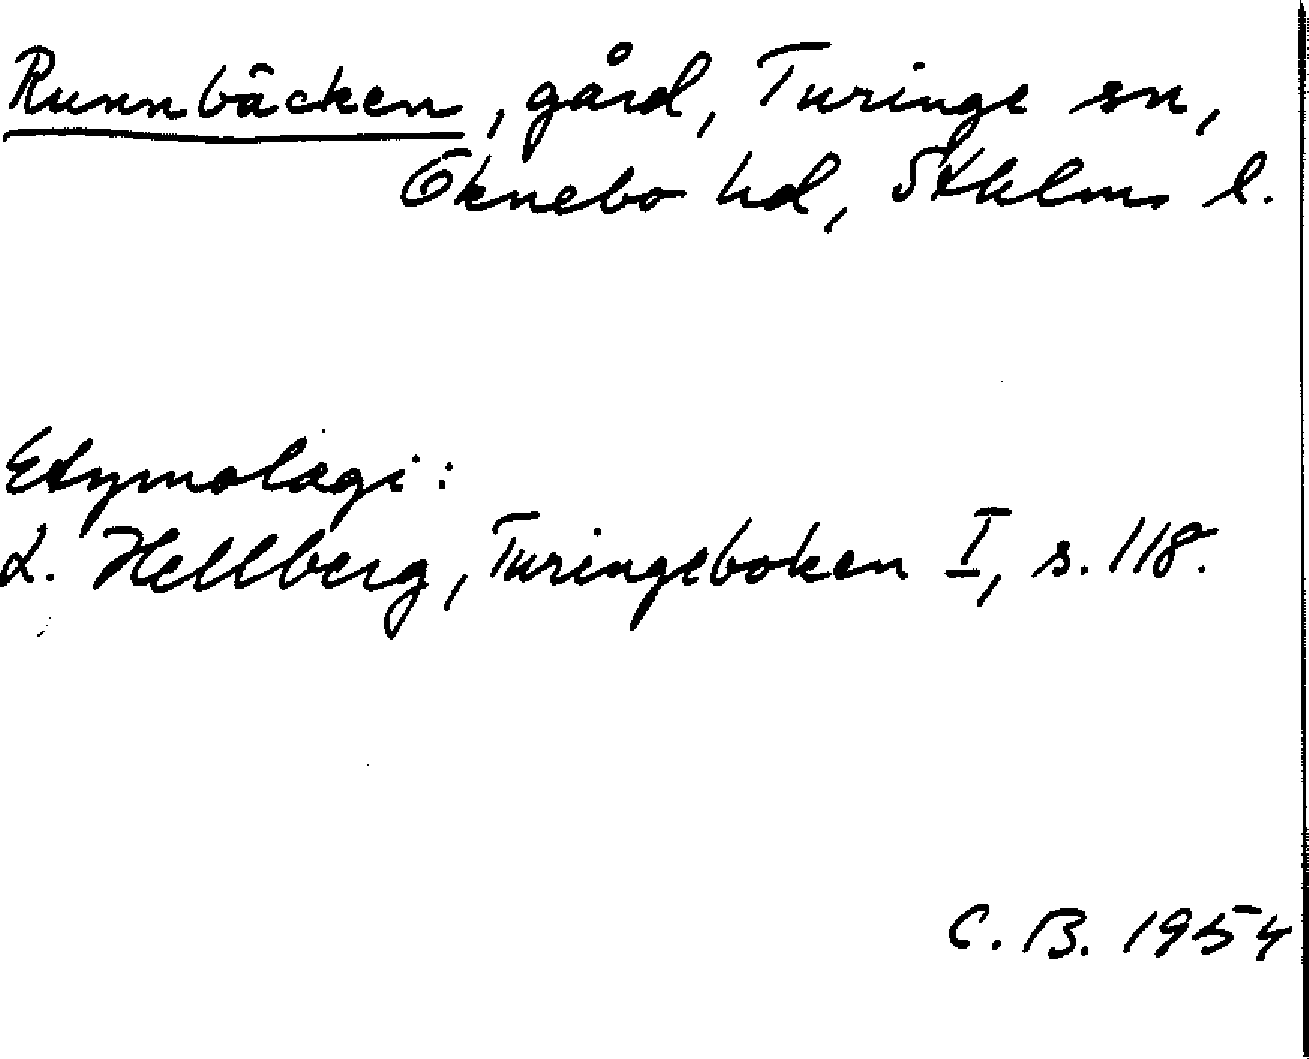 Runnbäcken, gård, Turinge sn,
Öknebo hd, Sthlms l.
Etymologi:
L. Hellberg, Turingeboken I, s. 118.
C. B. 1954